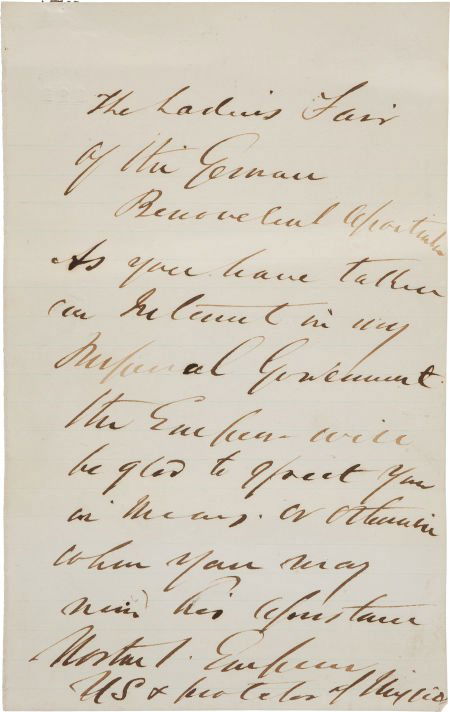 The Ladies Fair
of the German
Benevolent
As you have taken
an Interest in my
Imperial Government
the Emperor will
be glad to greet you
in Means. or Otherwise
when you may
his
Norton I. Emperor
US & protector of Mexico